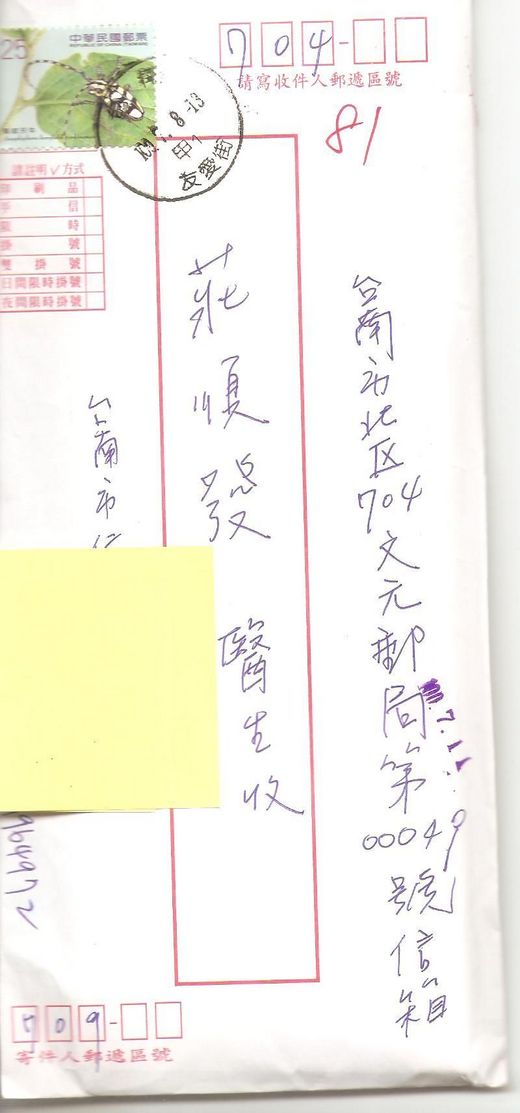 25
中華民國郵票
REPUBLIC OF CHINA (TAIWAN)
704
請寫收件人郵遞區號
8.-13
甲
友愛街
81
請註明✓方式
印刷品
平信
限時
掛號
雙掛號
日間限時掛號
夜間限時掛號
台南市北区704文元郵局第00049號信箱
7.11
莊順發 醫生收
台南市
709
寄件人郵遞區號